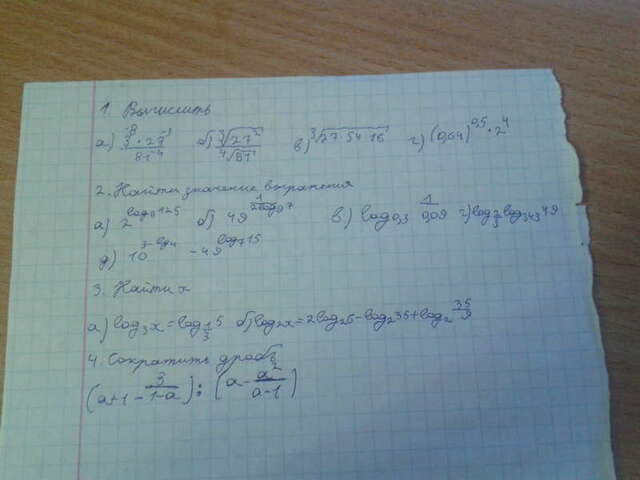 1. Вычислить
а) (3^-8 · 27^-1)/81^-4 б) ∛(27²)/∜(81) в) ∛(27·54·16) г) (0,64)^0,5 · 2^4
2. Найти значение выражения
а) 2^log₈125 б) 49 в) log₀,₃ 1/0,09 г) log₂/₃ log₃₄₃ 49
д) 10^(3-lg4) - 49^log₇15
3. Найти х
а) log₃x = log₁/₃ 5 б) log₂x = 2log₂5 - log₂35 + log₂ 35/9
4. Сократить дробь
(a+1 - 3/(1-a)) : (a - a²/(a-1))